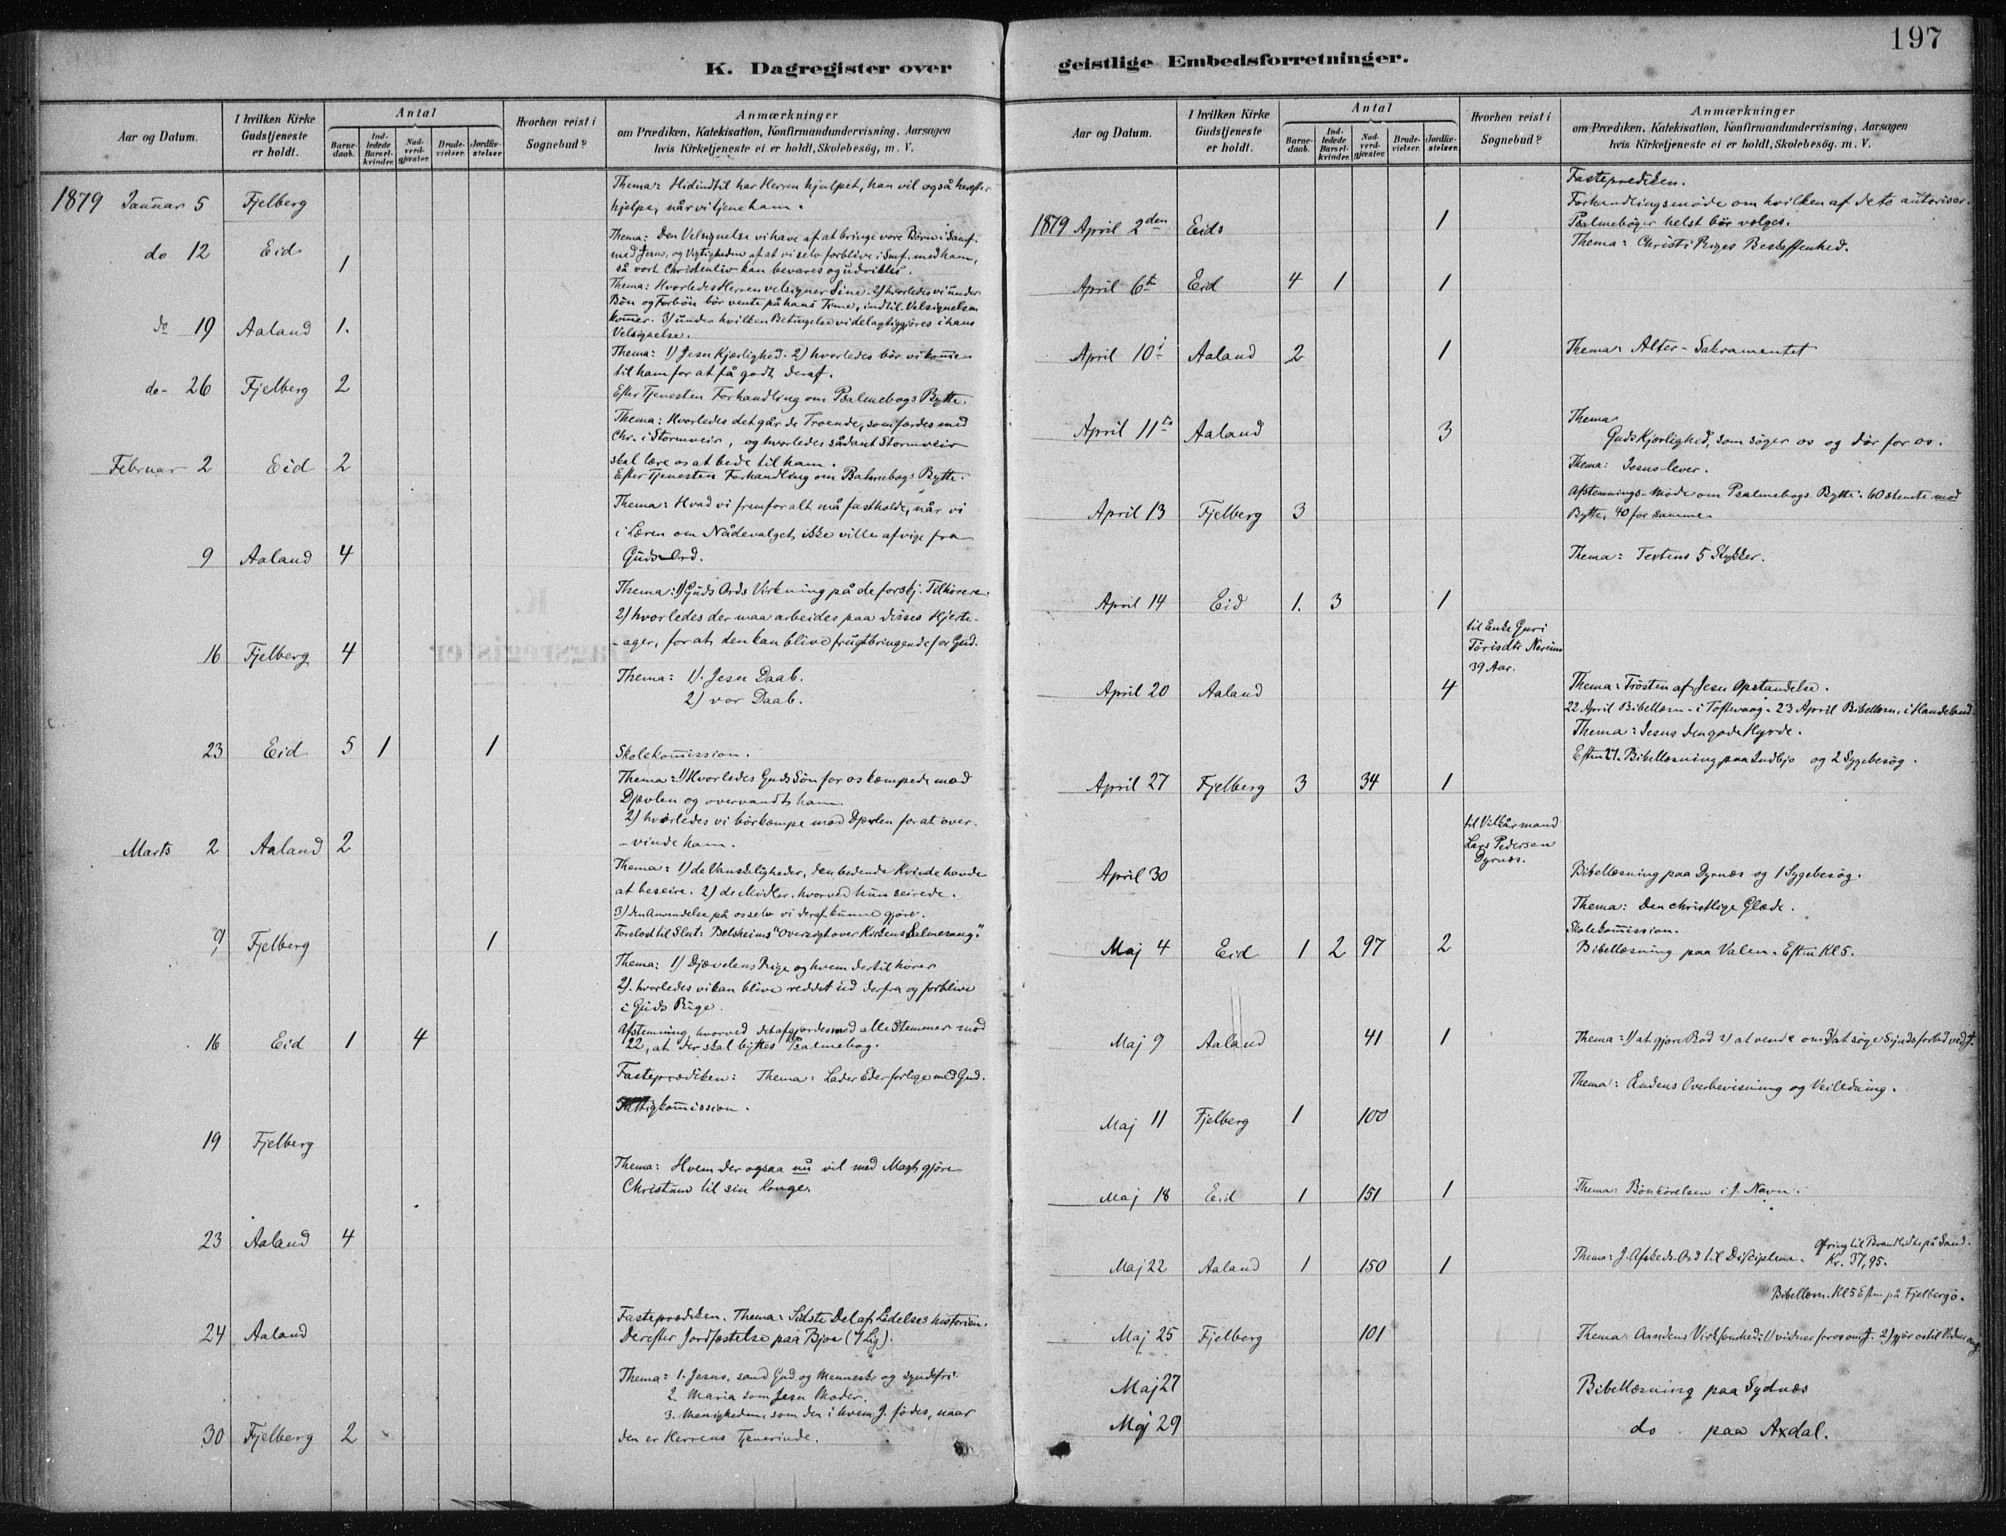 197
K. Dagregister over geistlige Embedsforretninger.
Aar og Datum.
I hvilken Kirke Gudstjeneste er holdt.
Antal
Barnedaab.
Indledede Barselkvinder.
Nadverdgjester.
Brudevielser.
Jordfæstelser.
Hvorhen reist i Sognebud?
Anmærkninger
om Prædiken, Katekisation, Konfirmandundervisning, Aarsagen
hvis Kirketjeneste ei er holdt, Skolebesøg, m. V.
1879 Januar 5 Fjelberg
Thema: Hidindtil har Herren hjulpet, han vil også herefter
hjelpe, når vi tjene ham.
do 12 Eid 1
Thema: Den Velsignelse vi have af at bringe vore Børn i Samf.
med Jesus, og Vigtigheden af at vi selv forblive i Smf. med ham,
så vort Christenliv kan bevares og udvikles.
do 19 Aaland 1.
Thema: Hvorledes Herren velsigner Sine. 2) hvorledes vi under
Bøn og Forbøn bør vente på hans Time, indtil Velsignelsen
kommer. 3) under hvilken Betingelse vi delagtiggjøres i hans
Velsignelse.
do- 26 Fjelberg 2
Thema: 1) Jesu Kjærlighed. 2) hvorledes bør vi komme
til ham for at få godt deraf.
Efter Tjenesten Forhandling om Psalmebogs Bytte.
Februar 2 Eid 2
Thema: Hvorledes det går de Troende, som fordes med
Chr. i Stormveir, og hvorledes sådant Stormveir
skal lære os at bede til ham.
Efter Tjenesten Forhandling om Psalmebogs Bytte.
9 Aaland 4
Thema: Hvad vi fremfor alt må fastholde, når vi
i Læren om Nådevalget ikke ville afvige fra
Guds Ord.
16 Fjelberg 4
Thema: 1) Guds Ords Virkning på de forskj. Tilhørere.
2) hvorledes der maa arbeides paa disses Hjerte-
-ager, for at den kan blive frugtbringende for Gud.
23 Eid 5 1 1
Thema: 1). Jesu Daab.
2) vor Daab.
Skolekommission.
Marts 2 Aaland 2
Thema: 1) Hvorledes Guds Søn for os kæmpede mod
Djævlen og overvandt ham
2) hvorledes vi bør kæmpe mod Djævlen for at over-
-vinde ham.
9 Fjelberg 1
Thema: 1) de Vanskeligheder, den bedende Kvinde havde
at beseire. 2) de Midler, hvorved hun seirede.
3) den Anvendelse på os selv vi deraf kunne gjøre.
Forelæst til Slut: Belsheims "Oversigt over Kirkens Psalmesang."
16 Eid 1 4
Thema: 1) Djævelens Rige og hvem der til hører
2). hvorledes vi kan blive reddet ud derfra og forblive
i Guds Rige.
Afstemning, hvorved det afgjordes med alle Stemmer mod
22, at der skal byttes Psalmebog.
19 Fjelberg
Fasteprædiken: Thema: Lader Eder forlige med Gud.
Fattigkommission.
23 Aaland 4
Thema: Hvem der ogsaa nu vil med Magt gjøre
Christum til sin Konge.
24 Aaland
Fasteprædiken. Thema: Sidste Del af Lidelseshistorien.
Derefter Jordfæstelse paa Bjoe (1 Lig).
30 Fjelberg 2
Thema: 1. Jesus, sand Gud og Menneske og syndefri.
2. Maria som Jesu Moder.
3. Menigheden, som den i hvem J. fødes, naar
den er Herrens Tjenerinde.
Aar og Datum.
I hvilken Kirke Gudstjeneste er holdt.
Antal
Barnedaab.
Indledede Barselkvinder.
Nadverdgjester.
Brudevielser.
Jordfæstelser.
Hvorhen reist i Sognebud?
Anmærkninger
om Prædiken, Katekisation, Konfirmandundervisning, Aarsagen
hvis Kirketjeneste ei er holdt, Skolebesøg, m. V.
1879 April 2den Eids 1
Fasteprædiken.
Forhandlingsmøde om hvilken af de to autoriser.
Psalmebøger helst bør vælges.
April 6te Eid 4 1 1
Thema: Christi Riges Beskaffenhed.
April 10 Aaland 2 1
Thema: Alter-Sakramentet
April 11te Aaland 3
Thema
Guds Kjærlighed, som søger os og dør for os.
April 13 Fjelberg 3
Thema: Jesus lever.
Afstemnings-Møde om Psalmebogs Bytte: 60 stemte mod
Bytte, 40 for samme
April 14 Eid 1. 3 1
Thema: Textens 5 Stykker.
til Enke Guri
39 Aar.
April 20 Aaland 4
Thema: Trøsten af Jesu Opstandelse.
22 April Bibellæsn. i Toftevaag. 23 April Bibellæsn. i Handeland.
April 27 Fjelberg 3 34 1
Thema: Jesus den gode Hyrde.
Eftm 27. Bibellæsning paa Indbjo og 2 Sygebesøg.
til Vilkårmand
Lars Pedersen
Dyrnæs.
April 30
Bibellæsning paa Dyrnæs og 1 Sygebesøg.
Maj 4 Eid 1 2 97 2
Thema: Den christlige Glæde.
Skolekommission.
Bibellæsning paa Valen. Eftm Kl 5.
Maj 9 Aaland 41 1
Thema: 1) at gjøre Bod 2) at vende om 3) at søge Syndsforlad ved J.
Maj 11 Fjelberg 1 100
Thema: Aandens Overbevisning og Veiledning.
Maj 18 Eid 1 151 1
Thema: Bønhørelsen i J. Navn.
Maj 22 Aaland 1 150 1
Thema: J. Afskeds Ord til Disciplene. Ofring til Brandlidte på Sand.
Kr. 37,95.
Bibellæsn. Kl 5 Eftm på Fjelbergø.
Maj 25 Fjelberg 101
Thema: Aandens Virksomhed: 1) vidner for os om J. 2) gjør os til Vidner om J.
Maj 27
Bibellæsning paa Sydnæs
Maj 29
do paa Axdal.